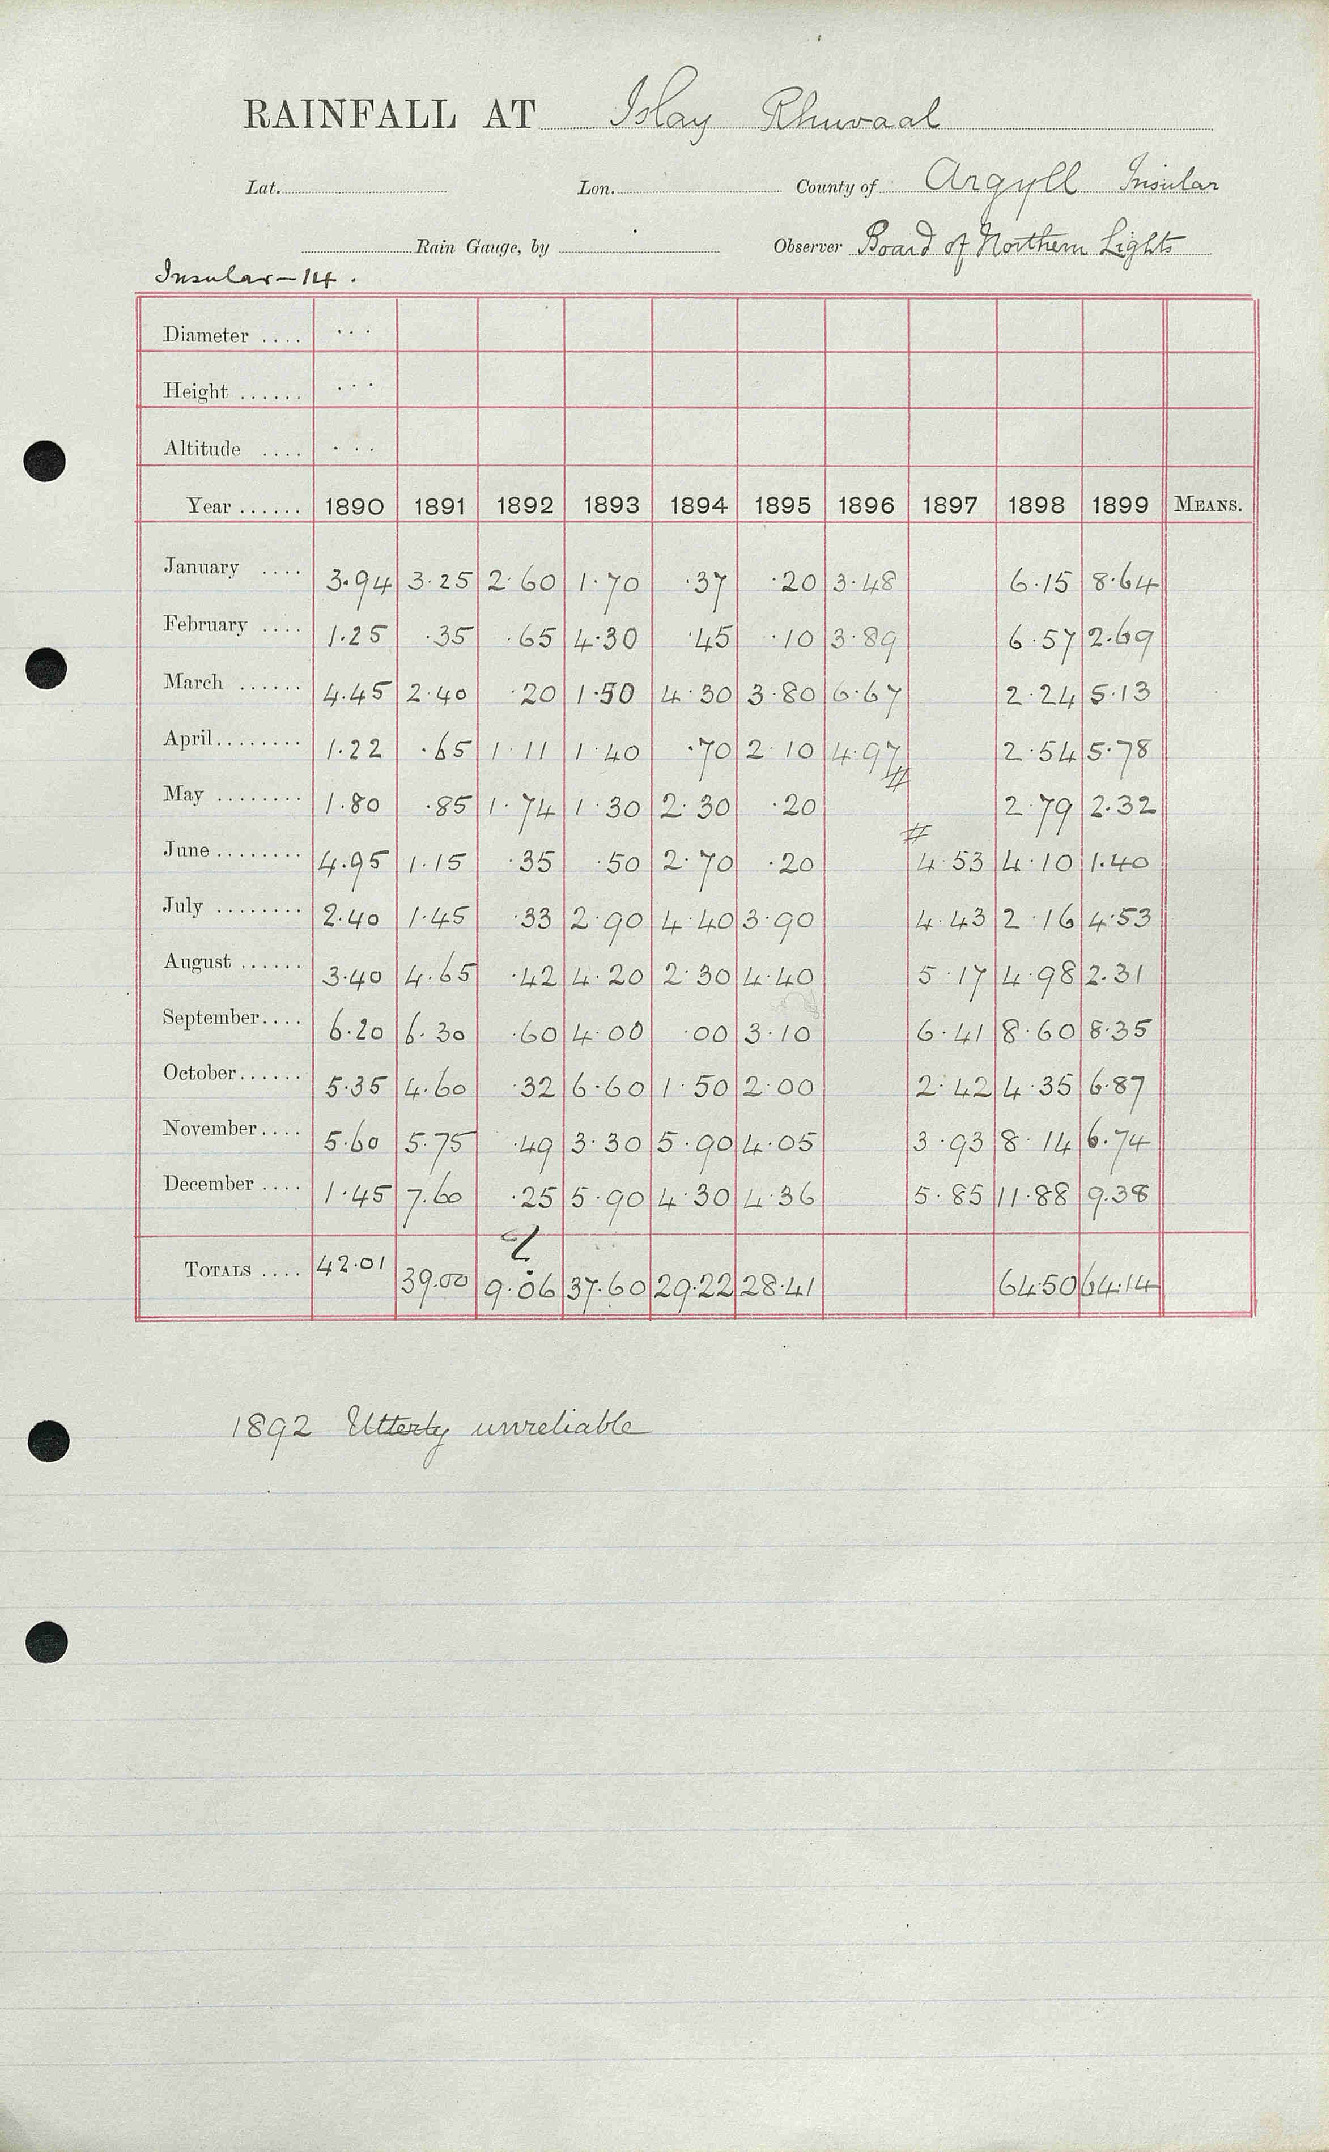 RAINFALL AT Islay Rhuvaal
Lat. Lon. County of Argyll Insular
Rain Gauge, by Observer Board of Northern Lights
Insular - 14.
Diameter .... ...
Height ...... ...
Altitude .... ...
Year ...... 1890 1891 1892 1893 1894 1895 1896 1897 1898 1899 MEANS.
January .... 3.94 3.25 2.60 1.70 .37 .20 3.48 6.15 8.64
February .... 1.25 .35 .65 4.30 .45 .10 3.89 6.57 2.69
March ...... 4.45 2.40 .20 1.50 4.30 3.80 6.67 2.24 5.13
April........ 1.22 .65 1.11 1.40 .70 2.10 4.97 2.54 5.78
May ........ 1.80 .85 1.74 1.30 2.30 .20 # 2.79 2.32
June........ 4.95 1.15 .35 .50 2.70 .20 # 4.53 4.10 1.40
July ........ 2.40 1.45 .33 2.90 4.40 3.90 4.43 2.16 4.53
August ...... 3.40 4.65 .42 4.20 2.30 4.40 5.17 4.98 2.31
September.... 6.20 6.30 .60 4.00 .00 3.10 6.41 8.60 8.35
October...... 5.35 4.60 .32 6.60 1.50 2.00 2.42 4.35 6.87
November.... 5.60 5.75 .49 3.30 5.90 4.05 3.93 8.14 6.74
December .... 1.45 7.60 .25 5.90 4.30 4.36 5.85 11.88 9.38
TOTALS .... 42.01 39.00 9.06 37.60 29.22 28.41 64.50 64.14
1892 Utterly unreliable